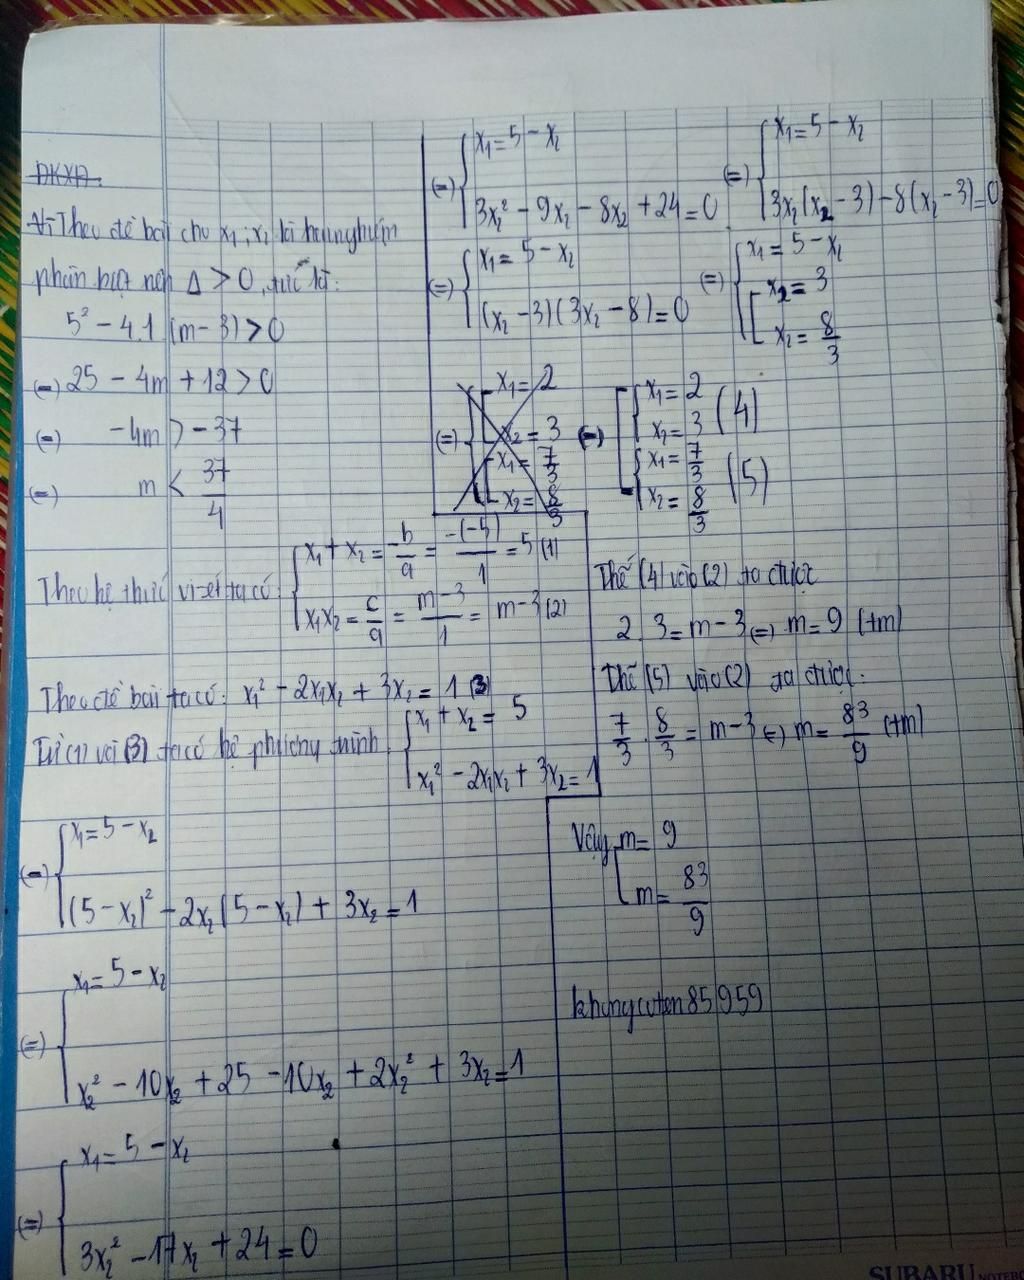 ĐKXĐ:
Vì Theo đề bài cho x₁; x₂ là hai nghiệm
phân biệt nên Δ > 0, tức là:
5² - 4.1 (m - 3) > 0
(=) 25 - 4m + 12 > 0
(=) -4m > -37
(=) m < 37/4
Theo hệ thức vi-ét ta có: { x₁ + x₂ = -b/a = -(-5)/1 = 5 (1)
x₁x₂ = c/a = m-3/1 = m-3 (2)
Theo đề bài ta có: x₁² - 2x₁x₂ + 3x₂ = 1 (3)
Từ (1) và (3) ta có hệ phương trình { x₁ + x₂ = 5
x₁² - 2x₁x₂ + 3x₂ = 1
(=) { x₁ = 5 - x₂
(5 - x₂)² - 2x₂(5 - x₂) + 3x₂ = 1
(=) { x₁ = 5 - x₂
x₂² - 10x₂ + 25 - 10x₂ + 2x₂² + 3x₂ = 1
(=) { x₁ = 5 - x₂
3x₂² - 17x₂ + 24 = 0
(=) { x₁ = 5 - x₂
3x₂² - 9x₂ - 8x₂ + 24 = 0
(=) { x₁ = 5 - x₂
3x₂(x₂ - 3) - 8(x₂ - 3) = 0
(=) { x₁ = 5 - x₂
(x₂ - 3)(3x₂ - 8) = 0
(=) { x₁ = 5 - x₂
[ x₂ = 3
x₂ = 8/3
(=) { [ x₁ = 2
x₂ = 3
[ x₁ = 7/3
x₂ = 8/3
(=) [ { x₁ = 2
x₂ = 3 (4)
{ x₁ = 7/3
x₂ = 8/3 (5)
Thế (4) vào (2) ta được
2.3 = m - 3 (=) m = 9 (tm)
Thế (5) vào (2) ta được:
7/3 . 8/3 = m - 3 (=) m = 83/9 (tm)
Vậy [ m = 9
m = 83/9
khongcoten85959
SUBARU